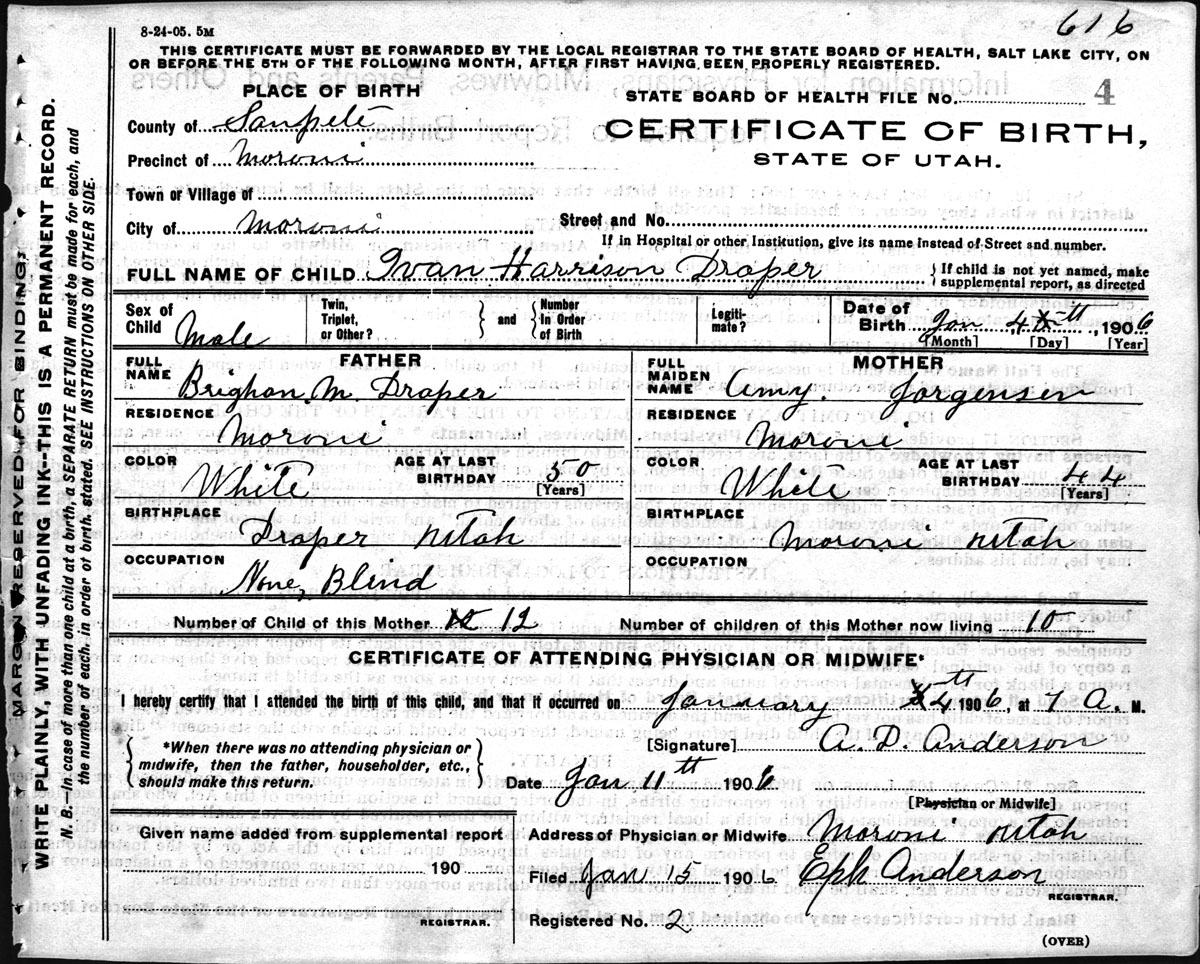 616
8-24-05. 5M
THIS CERTIFICATE MUST BE FORWARDED BY THE LOCAL REGISTRAR TO THE STATE BOARD OF HEALTH, SALT LAKE CITY, ON
OR BEFORE THE 5TH OF THE FOLLOWING MONTH, AFTER FIRST HAVING BEEN PROPERLY REGISTERED.
PLACE OF BIRTH
STATE BOARD OF HEALTH FILE No. 4
County of Sanpete
CERTIFICATE OF BIRTH,
Precinct of Moroni
STATE OF UTAH.
Town or Village of
City of Moroni Street and No.
If in Hospital or other Institution, give its name instead of Street and number.
FULL NAME OF CHILD Ivan Harrison Draper
{ If child is not yet named, make
supplemental report, as directed
Sex of Child Male
Twin, Triplet, or Other?
} and {
Number In Order of Birth
Legiti-mate?
Date of Birth Jan 4th 1906
[Month] [Day] [Year]
FATHER
FULL NAME Brighan M. Draper
RESIDENCE
Moroni
COLOR White AGE AT LAST BIRTHDAY 50
[Years]
BIRTHPLACE
Draper Utah
OCCUPATION
None, Blind
MOTHER
FULL MAIDEN NAME Amy. Jorgensen
RESIDENCE
Moroni
COLOR White AGE AT LAST BIRTHDAY 44
[Years]
BIRTHPLACE
Moroni Utah
OCCUPATION
Number of Child of this Mother 12 Number of children of this Mother now living 10
CERTIFICATE OF ATTENDING PHYSICIAN OR MIDWIFE*
I hereby certify that I attended the birth of this child, and that it occurred on January 4th 1906, at 7 A. M.
{ *When there was no attending physician or
midwife, then the father, householder, etc.,
should make this return. }
[Signature] A. D. Anderson
Date Jan 11th 1906
[Physician or Midwife]
Given name added from supplemental report
190
REGISTRAR.
Address of Physician or Midwife Moroni Utah
Filed Jan 15 1906 Eph Anderson
REGISTRAR.
Registered No. 2
(OVER)
MARGIN RESERVED FOR BINDING;
WRITE PLAINLY, WITH UNFADING INK--THIS IS A PERMANENT RECORD.
N. B.—In case of more than one child at a birth, a SEPARATE RETURN must be made for each, and
the number of each, in order of birth, stated. SEE INSTRUCTIONS ON OTHER SIDE.